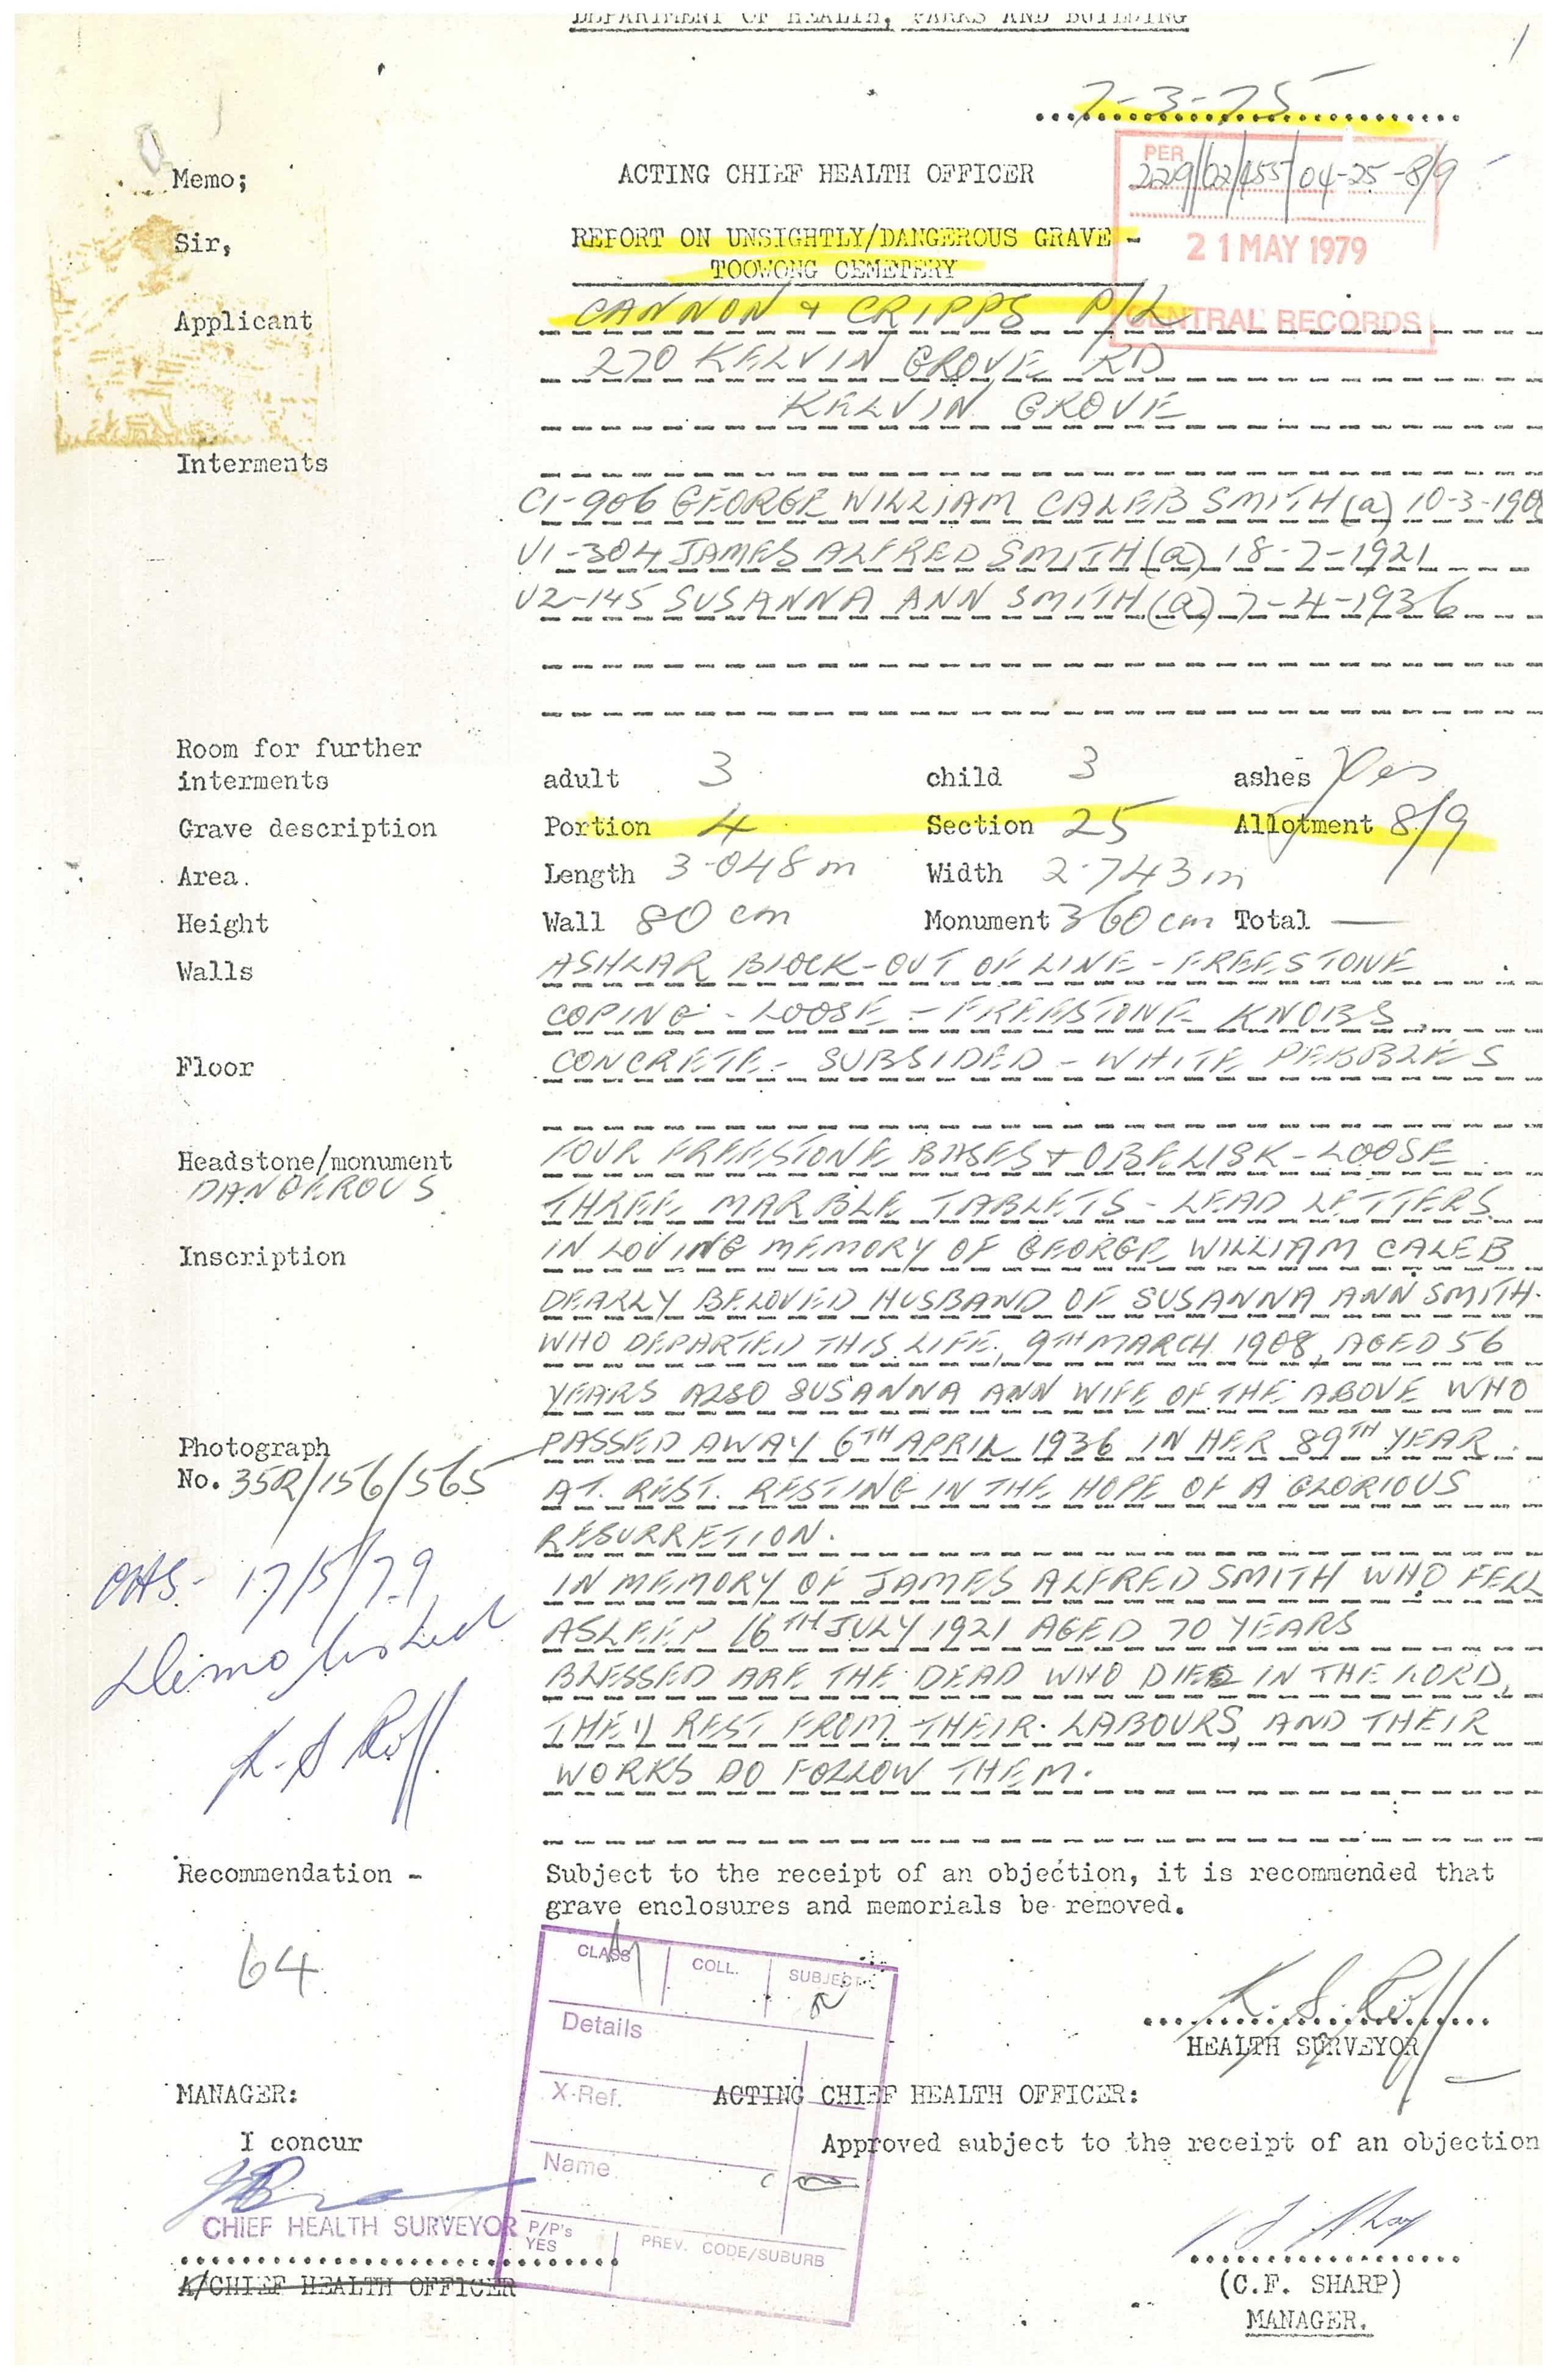 DEPARTMENT OF HEALTH, PARKS AND BUILDING
1
7-3-75
Memo;
ACTING CHIEF HEALTH OFFICER
PER
229/02/455/04-25-8/9
Sir,
REPORT ON UNSIGHTLY/DANGEROUS GRAVE -
TOOWONG CEMETERY
21 MAY 1979
CENTRAL RECORDS
Applicant
CANNON & CRIPPS P/L
270 KELVIN GROVE RD
KELVIN GROVE
Interments
C1-906 GEORGE WILLIAM CALEB SMITH (a) 10-3-1908
V1-304 JAMES ALFRED SMITH (a) 18-7-1921
V2-145 SUSANNA ANN SMITH (a) 7-4-1936
Room for further
interments adult 3 child 3 ashes Yes
Grave description Portion 4 Section 25 Allotment 8/9
Area. Length 3.048m Width 2.743m
Height Wall 80 cm Monument 360 cm Total —
Walls ASHLAR BLOCK-OUT OF LINE - FREESTONE
COPING - LOOSE - FREESTONE KNOBS
Floor CONCRETE - SUBSIDED - WHITE PEBBLES
Headstone/monument FOUR FREESTONE BASES & OBELISK - LOOSE
DANGEROUS THREE MARBLE TABLETS - LEAD LETTERS
Inscription IN LOVING MEMORY OF GEORGE WILLIAM CALEB
DEARLY BELOVED HUSBAND OF SUSANNA ANN SMITH.
WHO DEPARTED THIS LIFE, 9TH MARCH 1908, AGED 56
YEARS ALSO SUSANNA ANN WIFE OF THE ABOVE WHO
Photograph PASSED AWAY 6TH APRIL 1936 IN HER 89TH YEAR.
No. 35R/156/565 AT. REST. RESTING IN THE HOPE OF A GLORIOUS
RESURRETION.
IN MEMORY OF JAMES ALFRED SMITH WHO FELL
ASLEEP 16TH JULY 1921 AGED 70 YEARS
BLESSED ARE THE DEAD WHO DIE IN THE LORD,
THEY REST FROM THEIR LABOURS, AND THEIR
WORKS DO FOLLOW THEM.
17/5/79
Demolished
K. S Roff
Recommendation - Subject to the receipt of an objection, it is recommended that
grave enclosures and memorials be removed.
64
CLASS COLL. SUBJECT
Details
X-Ref.
Name
P/P's
YES
PREV. CODE/SUBURB
K. S. Roff
HEALTH SURVEYOR
MANAGER: ACTING CHIEF HEALTH OFFICER:
I concur Approved subject to the receipt of an objection
CHIEF HEALTH SURVEYOR
A/CHIEF HEALTH OFFICER
(C.F. SHARP)
MANAGER.